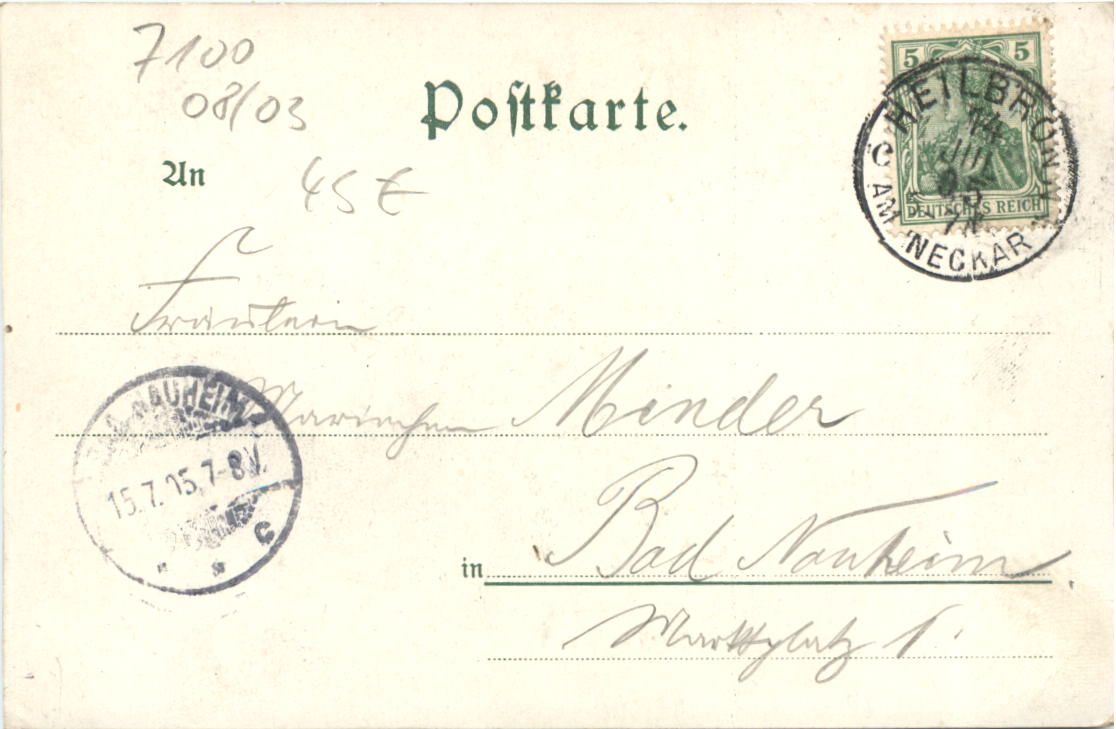 7100
08/03
Postkarte.
An
45 €
5 5
DEUTSCHES REICH
HEILBRONN
14 JUL 05
AM NECKAR
C
Fräulein
Mariechen Minder
BAD-NAUHEIM
15.7.05.7-8V.
C
in Bad Nauheim
Marktplatz 1.